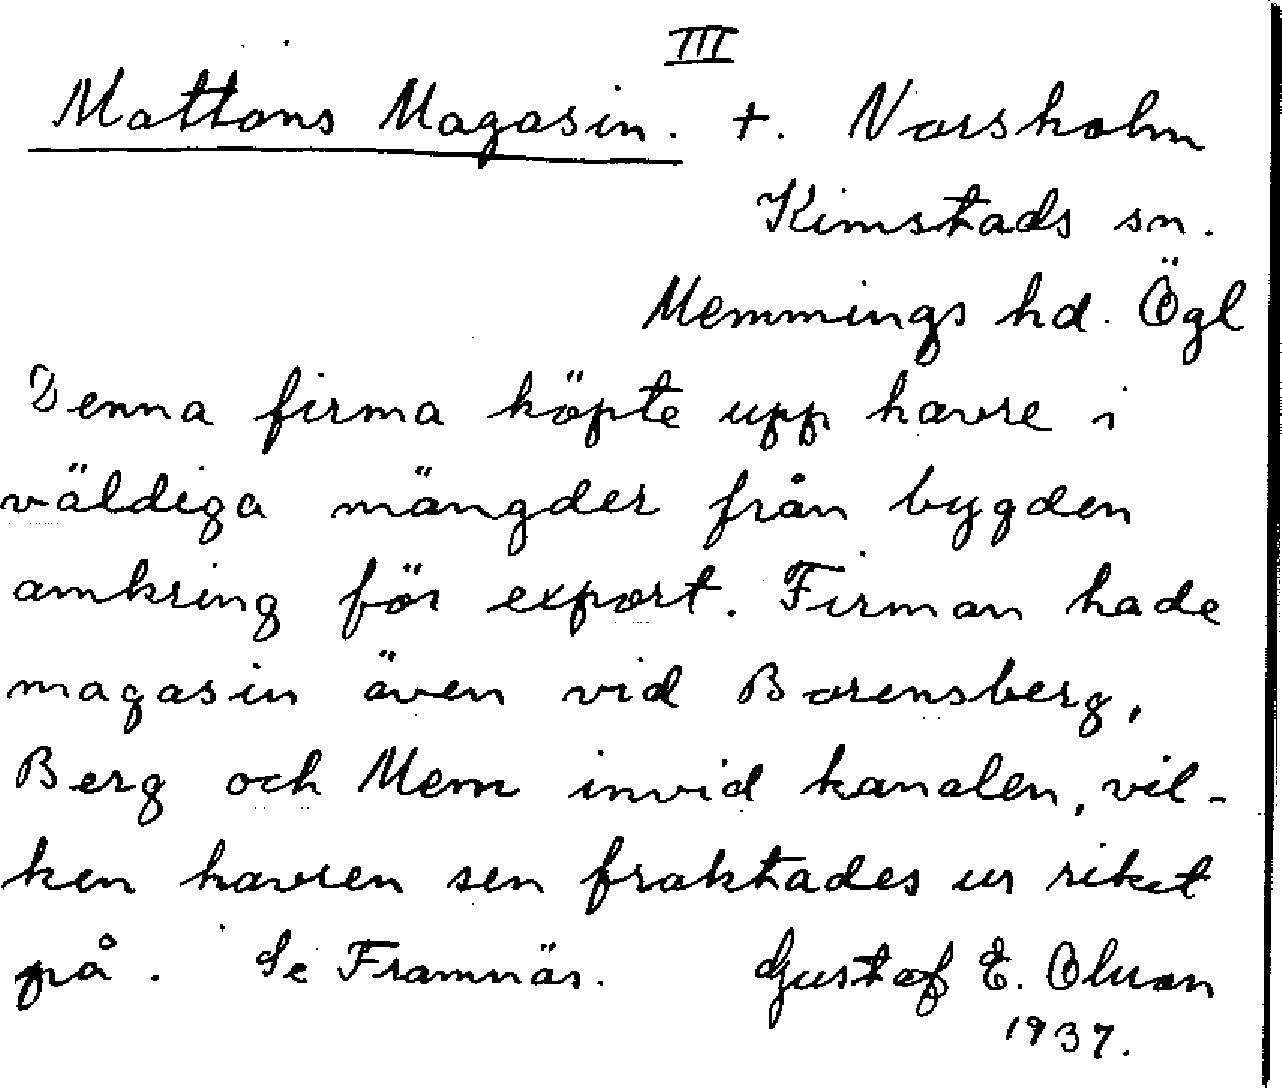 III
Mattons Magasin. +. Norsholm
Kimstads sn.
Memmings hd. Ögl
Denna firma köpte upp havre i
väldiga mängder från bygden
omkring för export. Firman hade
magasin även vid Borensberg,
Berg och Mem invid kanalen, vil-
ken havren sen fraktades ur riket
på. Se Framnäs. Gustaf E. Olsson
1937.